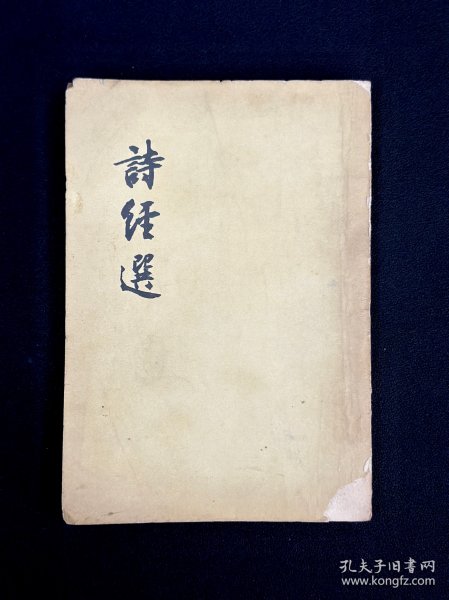 詩經選
孔夫子旧书网
www.kongfz.com